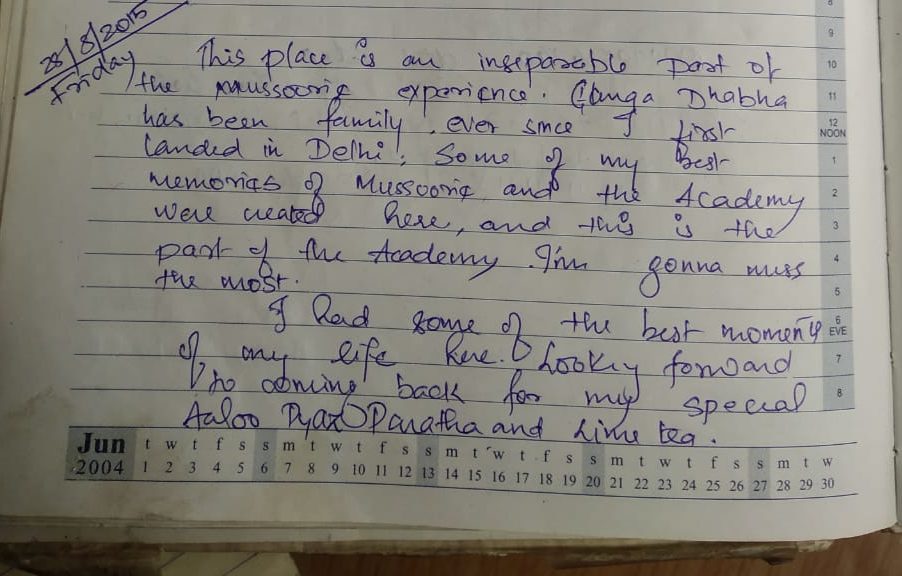 28/8/2015
Friday
This place is an inseparable part of
the Mussoorie experience. Ganga Dhabha
has been family, ever since I first
landed in Delhi. Some of my best
memories of Mussoorie and the Academy
were created here, and this is the
part of the Academy I'm gonna miss
the most.
I had some of the best moments
of my life here. Looking forward
to coming back for my special
Aaloo Pyaz Paratha and Lime tea.
8
9
10
11
12
NOON
1
2
3
4
5
6
EVE
7
8
Jun t w t f s s m t w t f s s m t w t f s s m t w t f s s m t w
2004 1 2 3 4 5 6 7 8 9 10 11 12 13 14 15 16 17 18 19 20 21 22 23 24 25 26 27 28 29 30